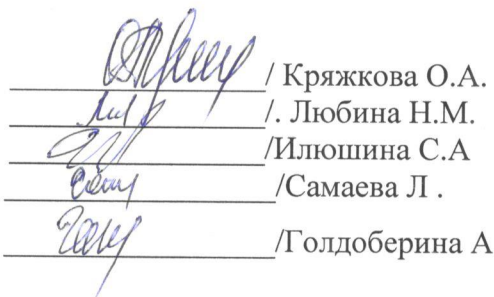 / Кряжкова О.А.
/. Любина Н.М.
/Илюшина С.А
/Самаева Л .
/Голдоберина А